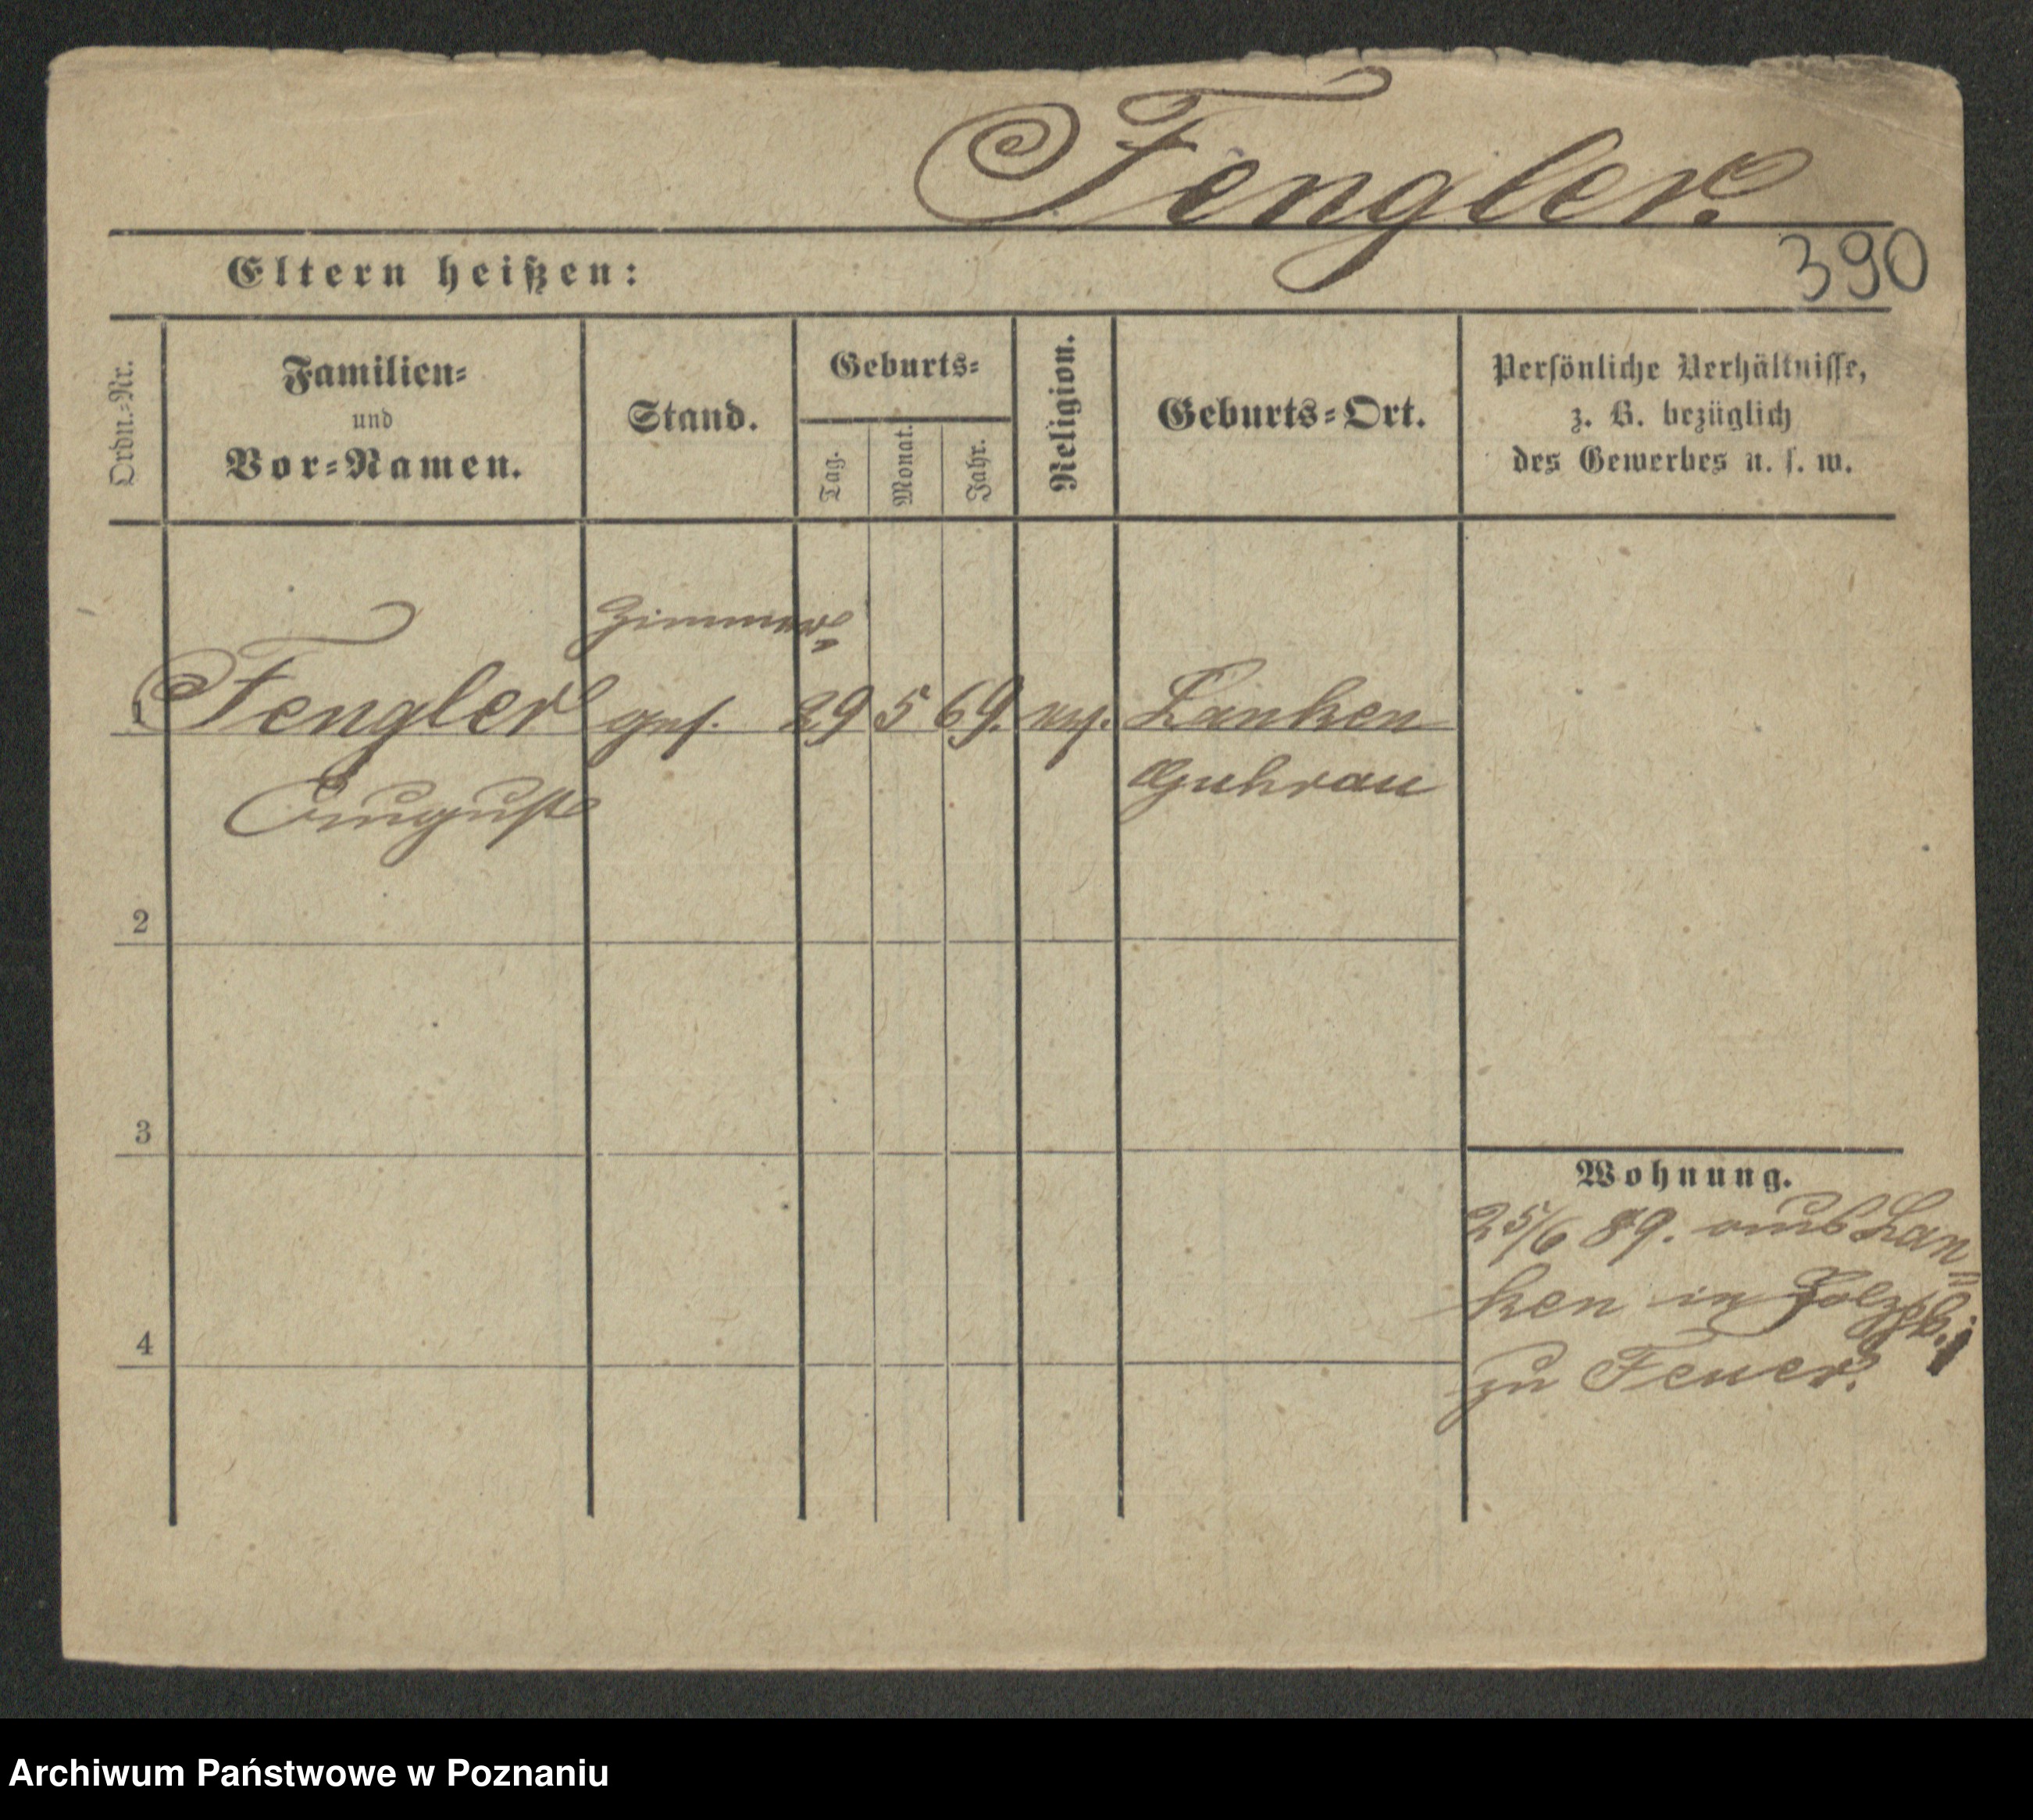 Fengler.
390
Eltern heißen:
Ordn.-Nr.
Familien-
und
Vor-Namen.
Stand.
Geburts-
Tag.
Monat.
Jahr.
Religion.
Geburts-Ort.
Persönliche Verhältnisse,
z. B. bezüglich
des Gewerbes u. s. w.
Zimmer-
1 Fengler ges. 29 5 69. Lanken
August Guhrau
2
3
4
Wohnung.
25/6 89. aus Lan-
ken in
zu Feuer.
Archiwum Państwowe w Poznaniu